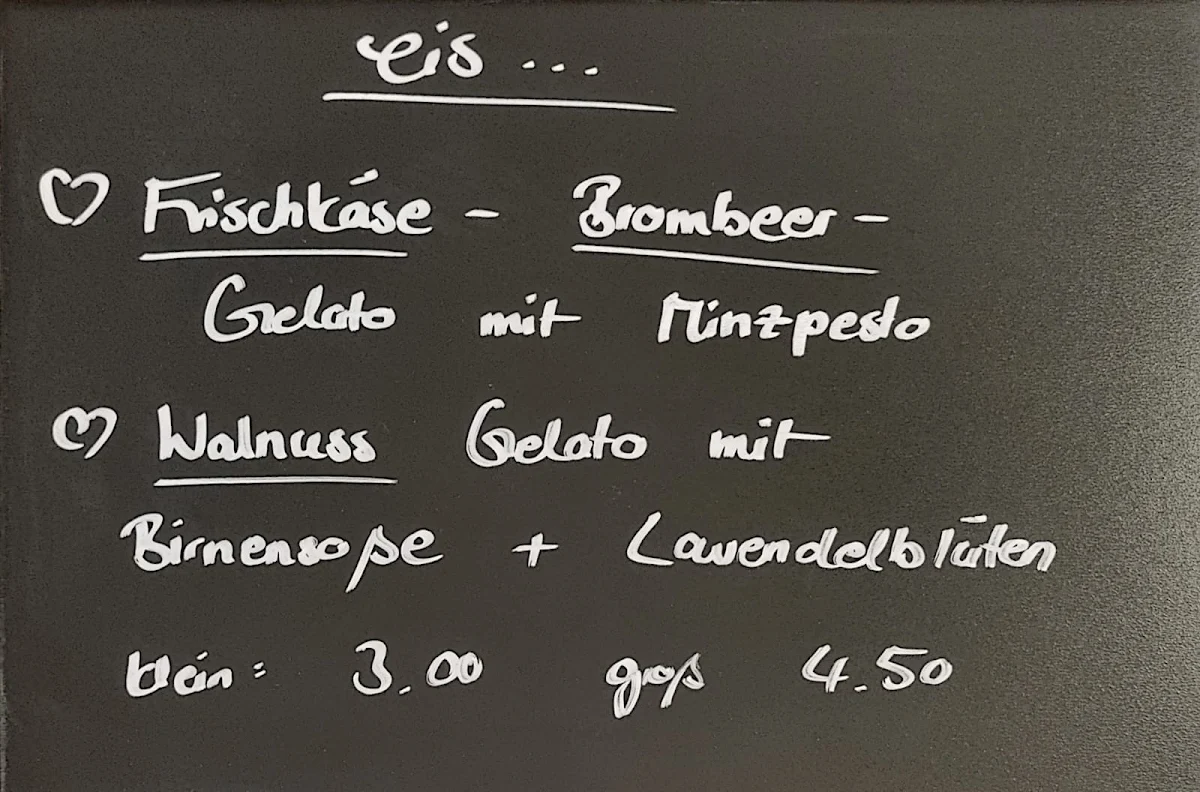 eis ...
♡ Frischkäse - Brombeer -
Gelato mit Minzpesto
♡ Walnuss Gelato mit
Birnensoße + Lavendelblüten
klein : 3.00 groß 4.50